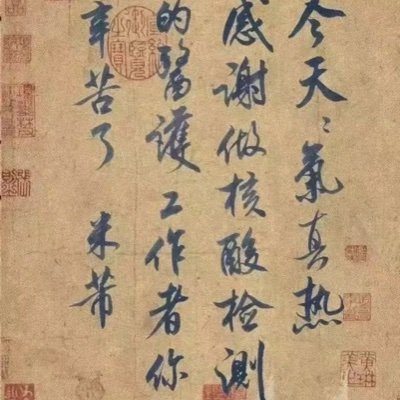 今天〻氣真热
感謝做核酸检测
的醫護工作者你
辛苦了 米芾